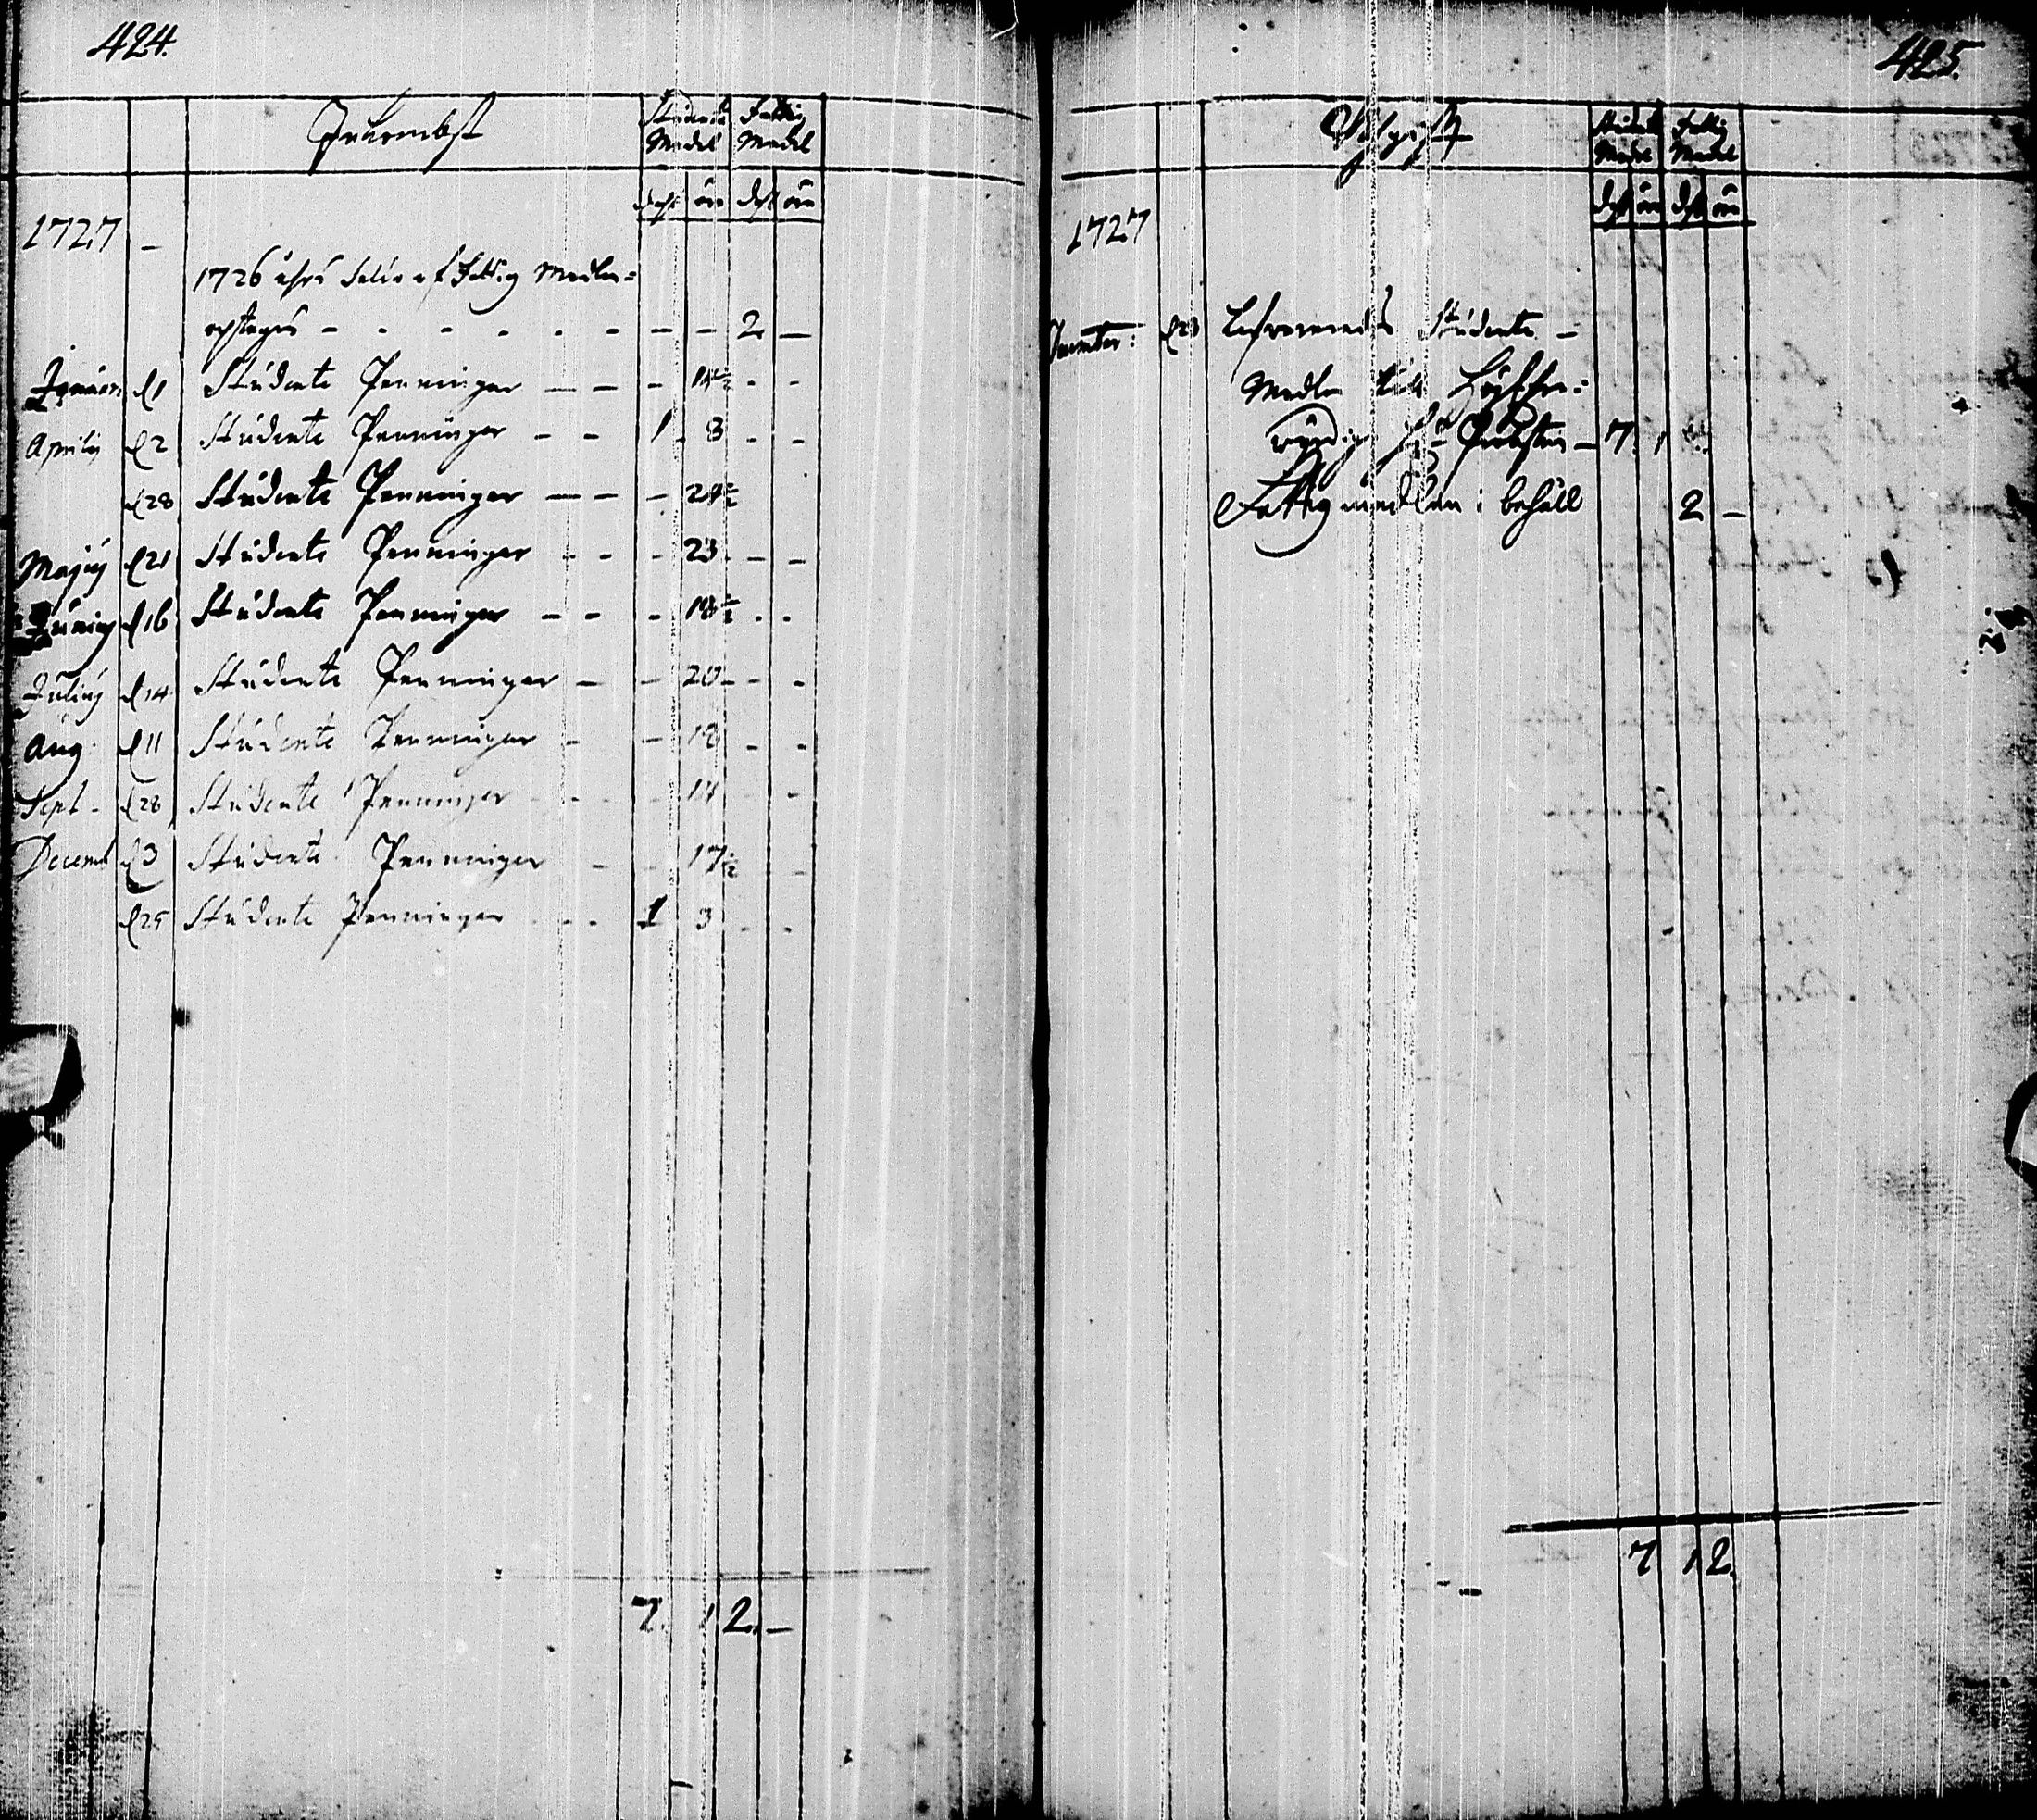 424.
Inkombst Studente Medel Fattig Medel
dahl öre dahl öre
1727 -
1726 åhrs Saldo af Fattig Medlen=
optages - - - - - - - - 2 -
Januar: d 1 Studente Penningar - - - 14½ - -
Aprilij d 2 Studente Penningar - - 1 8 - -
d 28 Studente Penningar - - - 24½
Majij d 21 Studente Penningar - - - 23 - -
Junij d 16 Studente Penningar - - - 18½ - -
Julij d 14 Studente Penningar - - 20 - -
Aug: d 11 Studente Penningar - - 18 - -
Sept - d 28 Studente Penningar - - - 14 - -
Decemb d 3 Studente Penningar - - 17½ - -
d 25 Studente Penningar - - 1 3 - -
7. 1 2. -
425.
Uthgift Student Medel Fattig Medel
dahl öre dahl öre
1727
Lefwererades Studente -
Medlen till Högehre=
wördig H:r Probsten - 7. 1
Fattig medlen i behåll 2 -
7 1 2.